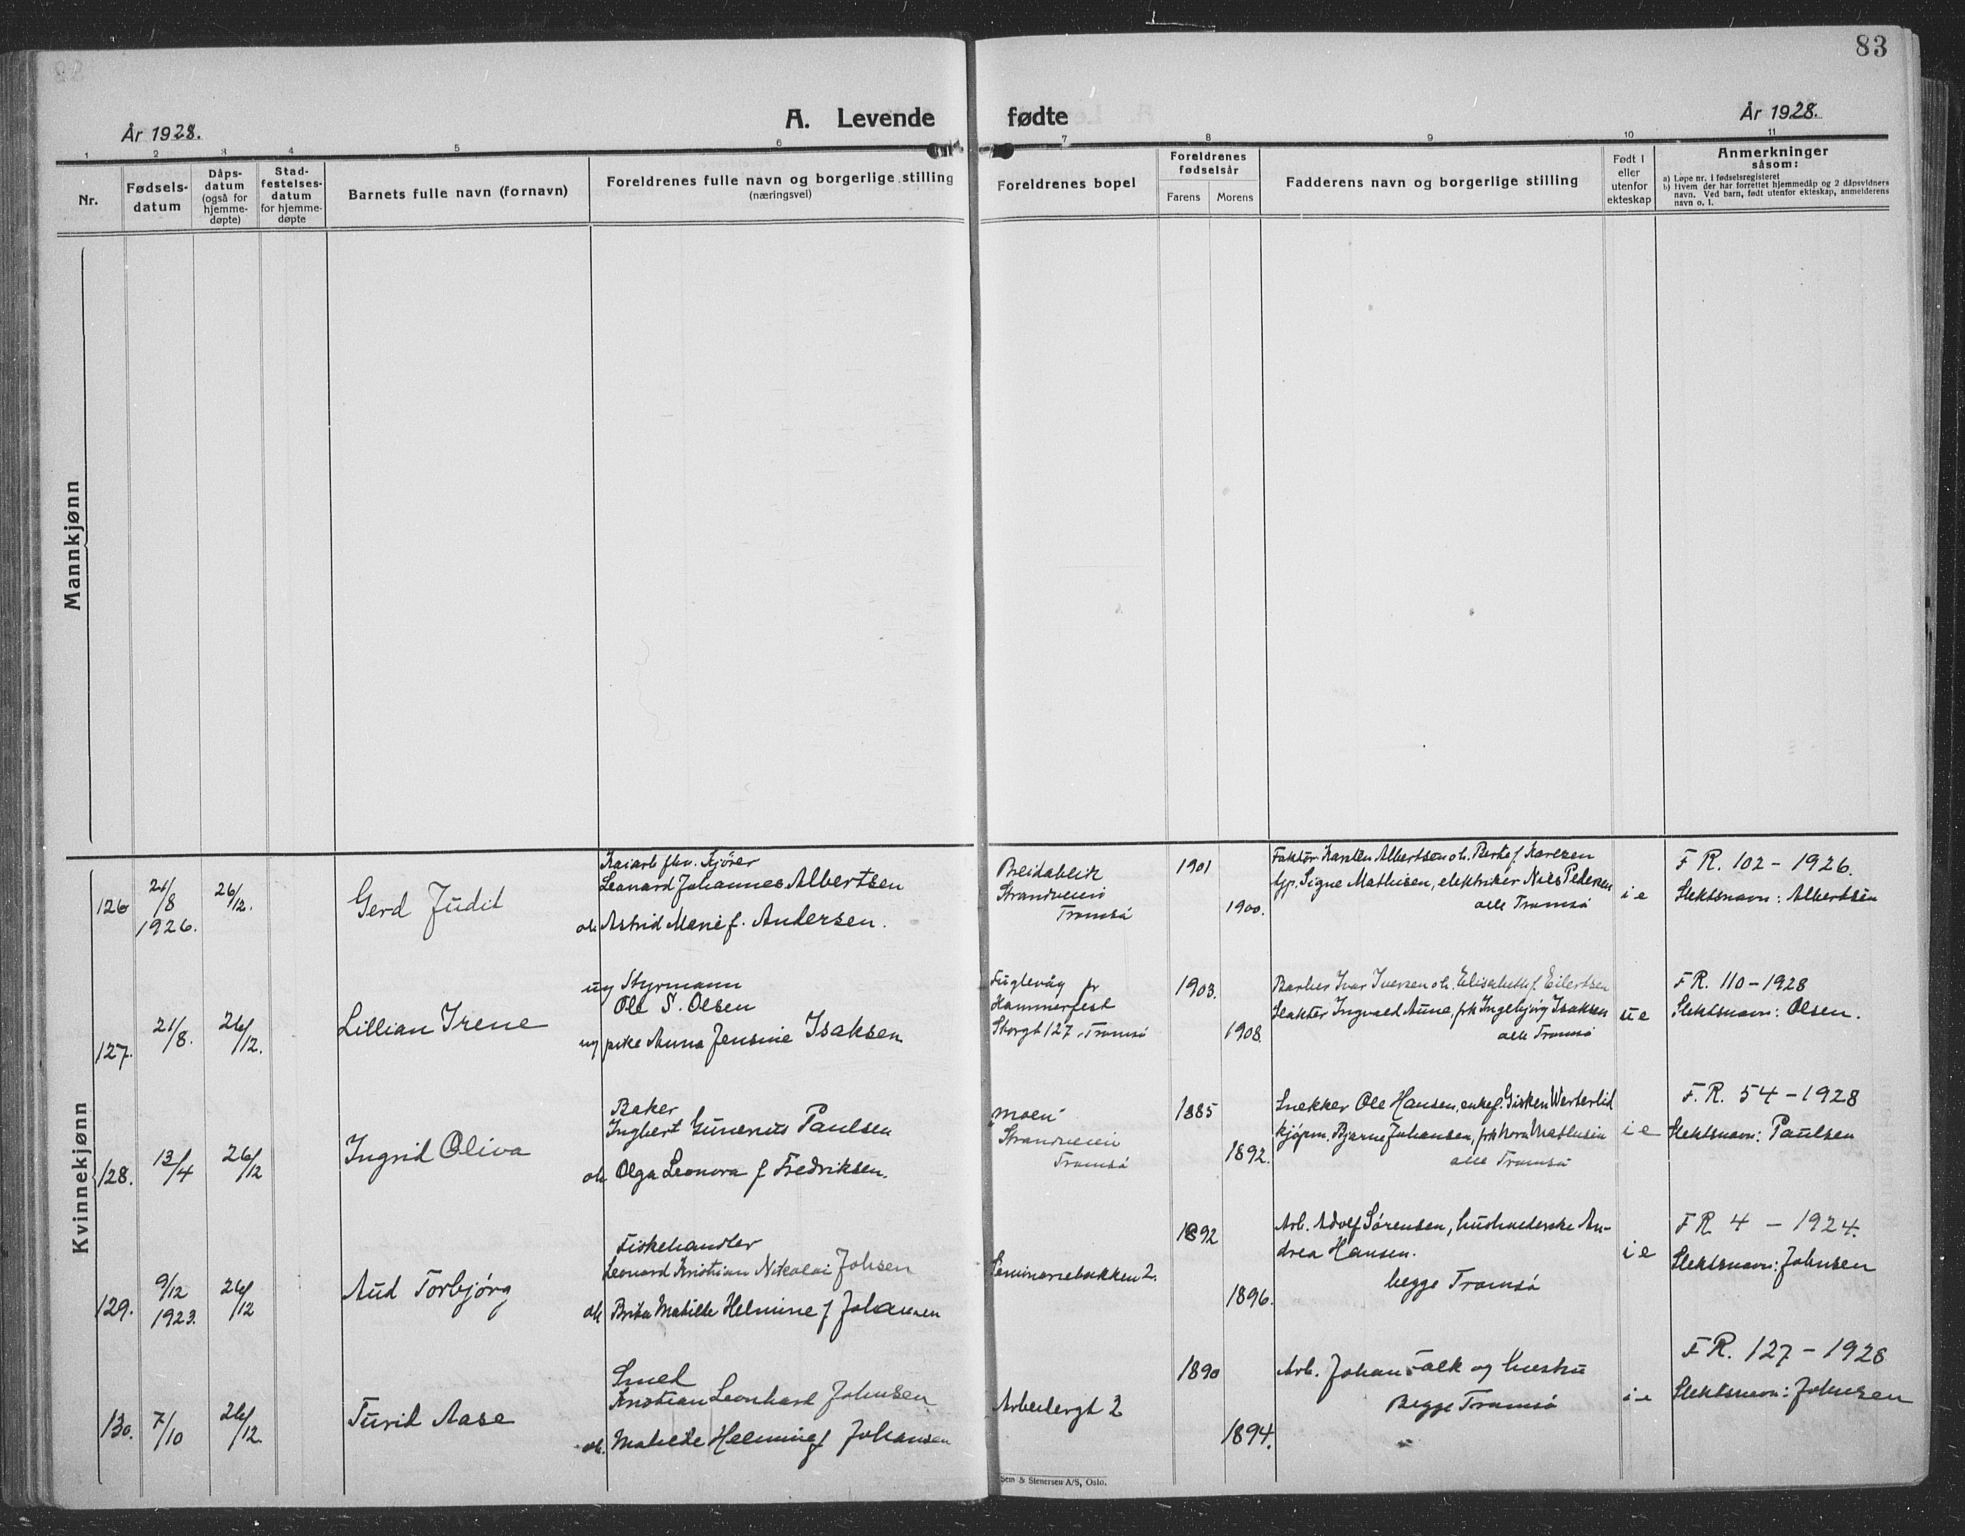 83
År 1928.
A. Levende fødte
År 1928.
1 2 3 4 5 6 7 8 9 10 11
Nr.
Fødsels-
datum
Dåps-
datum
(også for
hjemme-
døpte)
Stad-
festelses-
datum
for hjemme-
døpte
Barnets fulle navn (fornavn)
Foreldrenes fulle navn og borgerlige stilling
(næringsvei)
Foreldrenes bopel
Foreldrenes
fødselsår
Farens Morens
Fadderens navn og borgerlige stilling
Født i
eller
utenfor
ekteskap
Anmerkninger
såsom:
a) Løpe nr. i fødselsregisteret
b) Hvem der har forrettet hjemmedåp og 2 dåpsvidners
navn. Ved barn, født utenfor ekteskap, anmelderens
navn o. l.
Mannkjønn
Kvinnekjønn
126
21/8
1926.
26/12.
Gerd Judit
Kaiarb fhv. Kjører
Leonard Johannes Albertsen
oh Astrid Marie f. Andersen.
Breidablik
Strandveien
Tromsø
1901
1900.
Faktor Karsten Albertsen o h. Berte f. Karlsen
Signe Mathisen, elektriker Nils Pedersen
alle Tromsø
i e
F R. 102 - 1926.
Slektsnavn: Albertsen
127.
21/8.
26/12.
Lillian Irene
ug Styrmann
Ole S. Olsen
ug pike Anna Jensine Isaksen
Fuglevåg pr
Hammerfest
Storgt 127, Tromsø
1903.
1908.
Barber Ivar Iversen o h. Elisabeth f. Eilertsen
Slakter Ingvald Aune, frk Ingebjørg Isaksen
alle Tromsø
u e
F R. 110 - 1928
Slektsnavn: Olsen.
128.
13/4
26/12
Ingrid Oliva
Baker
Ingbert Gunerius Paulsen
oh Olga Leonora f Fredriksen.
Moen
Strandveien
Tromsø
1885
1892.
Snekker Ole Hansen, enkef. Gisken Westerlid
kjøpm. Bjarne Johansen, frk Nora Mathisen
alle Tromsø
i e
F. R. 54 - 1928
Slektsnavn: Paulsen
129.
9/12
1923.
26/12
Aud Torbjørg
Fiskehandler
Leonard Kristian Nikolai Johsen
oh Matilde Helmine f Johansen
Seminariebakken 2.
1892
1896.
Arb. Adolf Sørensen, husholderske An-
drea Hansen.
begge Tromsø
i e
F R 4 - 1924.
Slektsnavn: Johnsen
130.
7/10
26/12.
Turid Aase
Smed
Kristian Leonhard Johnsen
oh. Matilde Helmine f Johansen
Arbeidergt 2
1890
1894.
Arb. Johan Falk og hustru
Begge Tromsø
i e
F R. 127 - 1928
Slektsnavn: Johnsen
Sem & Stenersen A/S, Oslo.